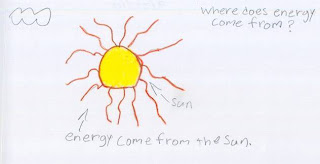 Where does energy
come from?
Sun
energy come from the Sun.